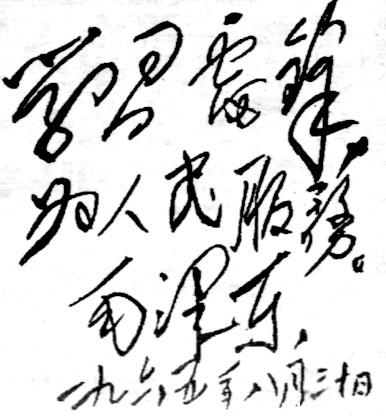 学習雷鋒，
为人民服務。
毛泽东
一九六五年八月三十日